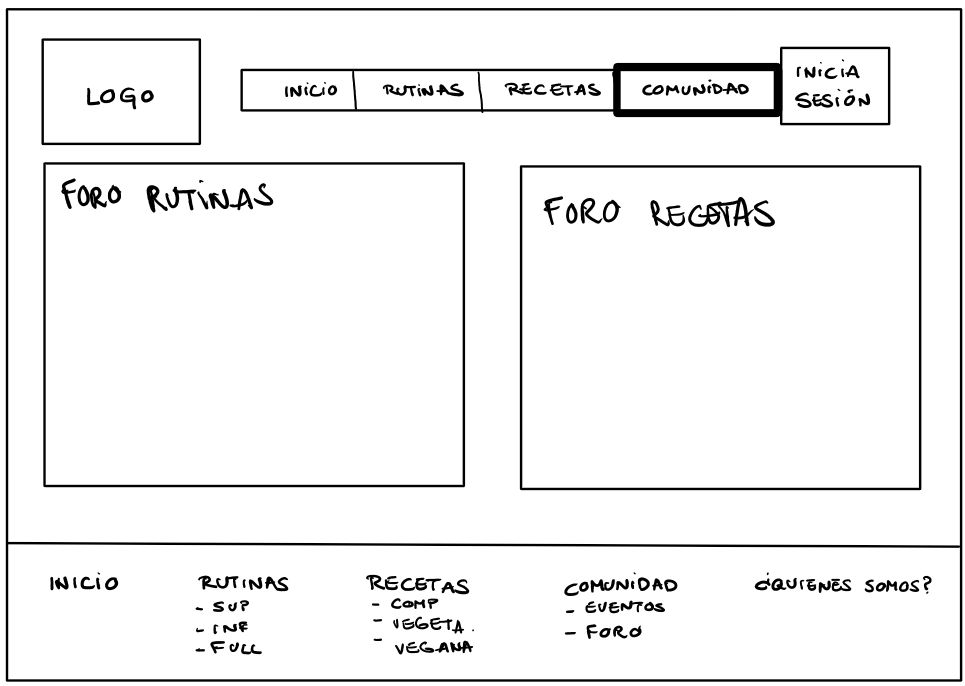 LOGO
INICIO RUTINAS RECETAS COMUNIDAD
INICIA
SESIÓN
FORO RUTINAS
FORO RECETAS
INICIO
RUTINAS
- SUP
- INF
- FULL
RECETAS
- COMP
- VEGETA.
- VEGANA
COMUNIDAD
- EVENTOS
- FORO
¿QUIENES SOMOS?